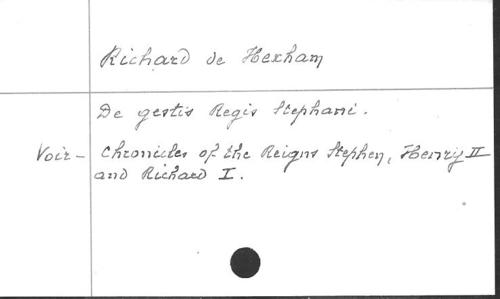 Richard de Hexham
De gestis Regis Stephani.
Voir - Chronicles of the Reigns Stephen, Henry II
and Richard I.